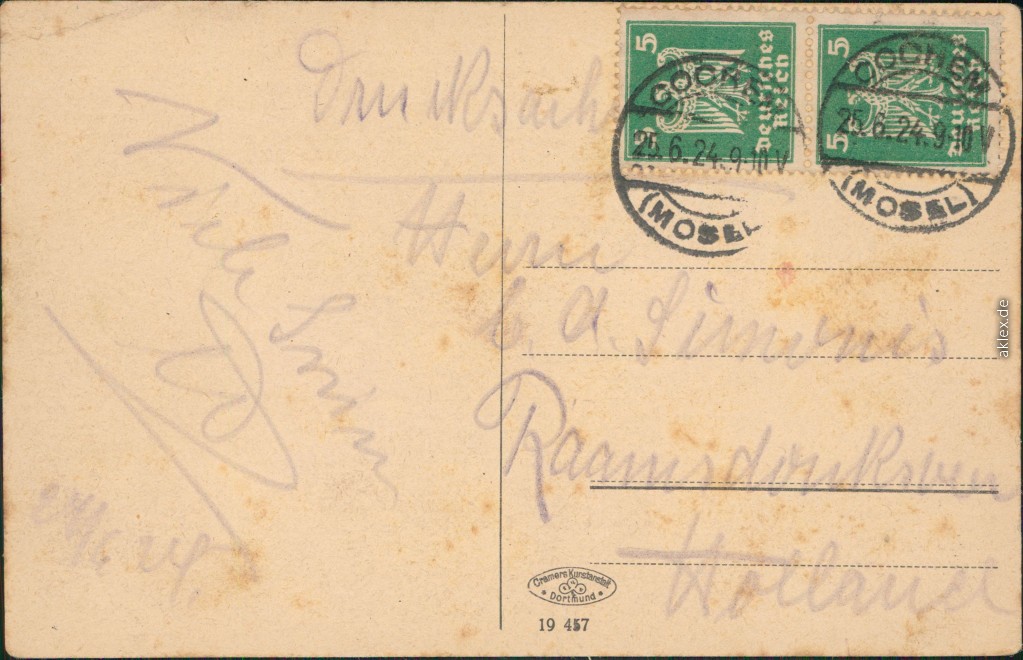 Drucksache
Herrn
C. A. Simonis
Raamsdonksveer
Holland
Viele
5
Deutsches
Reich
5
5
Deutsches
Reich
5
COCHEM
25.6.24.9-10V
(MOSEL)
COCHEM
25.6.24.9-10V
(MOSEL)
Cramers Kunstanstalt
Dortmund
19 457
aklex.de